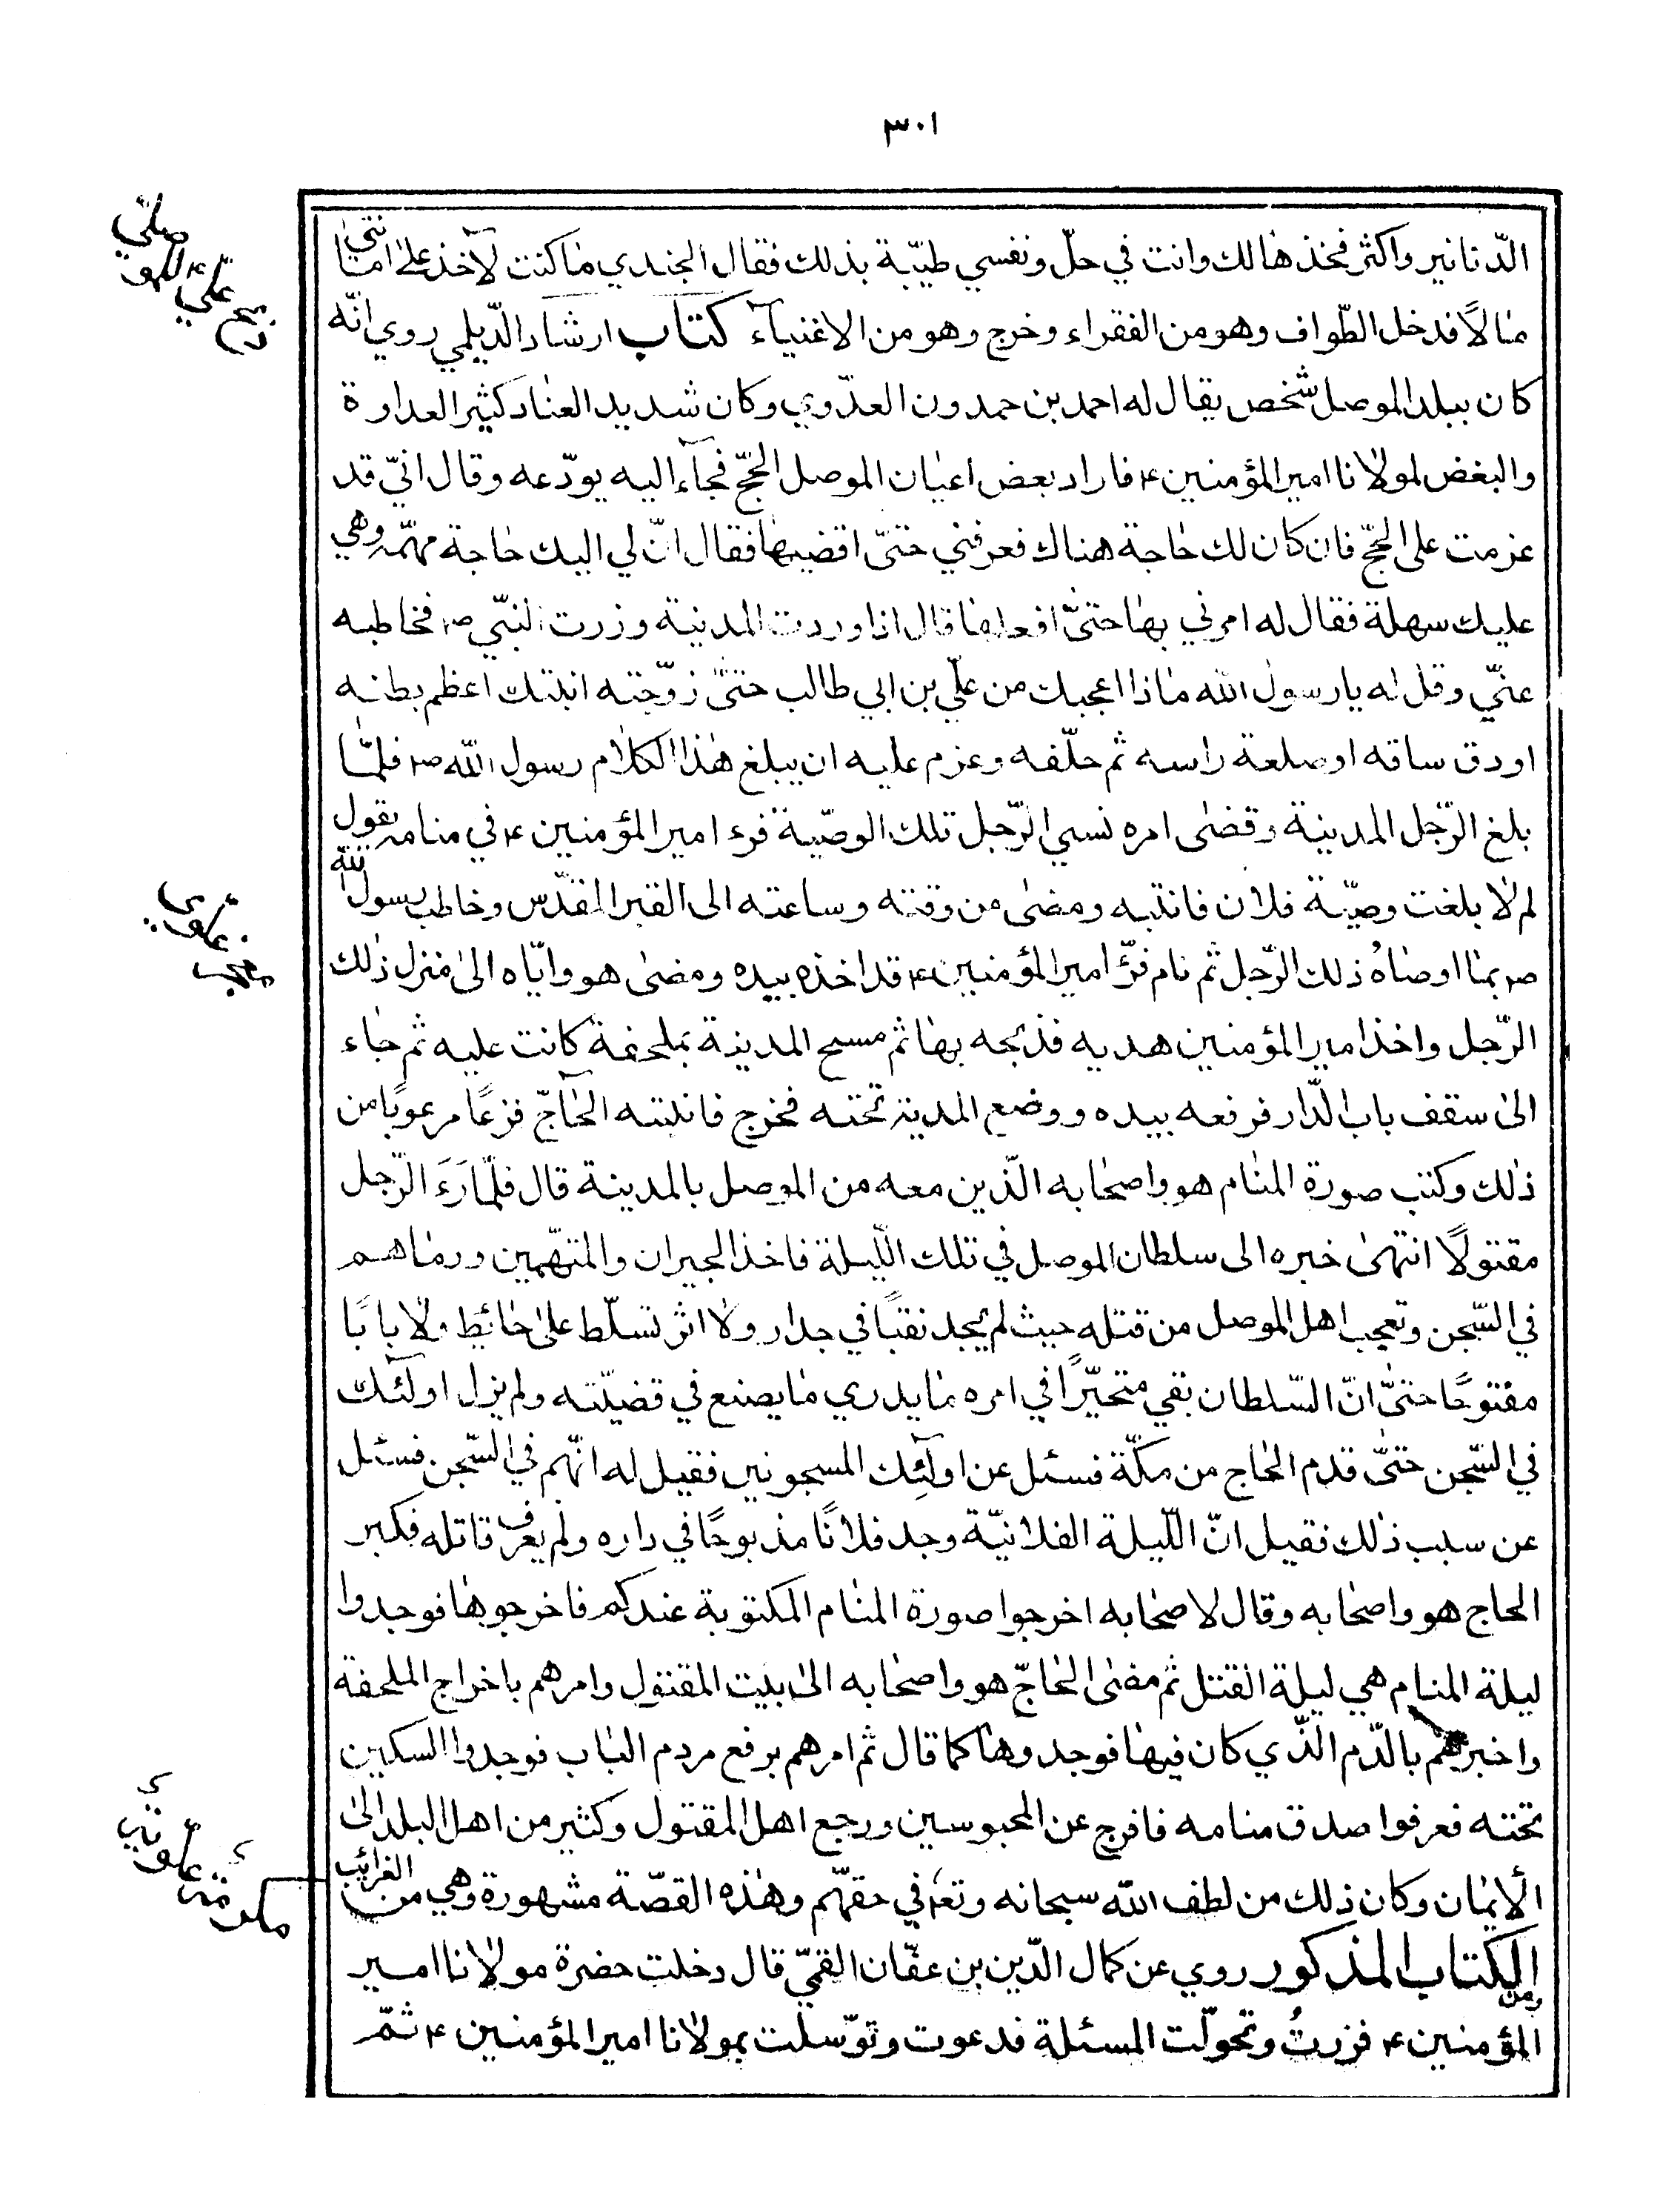 ٣٠١
الدّنانير واكثر فخذها لك وانت في حلّ ونفسي طيّبة بذلك فقال الجندي ماكنت لآخذ على امانتي
مالًا فدخل الطّواف وهو من الفقراء وخرج وهو من الاغنيآء كتاب ارشاد الدّيلمي روي انّه
كان ببلد الموصل شخص يقال له احمد بن حمدون العدّوي وكان شديد العناد كثير العداوة
والبغض لمولانا امير المؤمنين ع فاراد بعض اعيان الموصل الحجّ فجآء اليه يودّعه وقال انّي قد
عزمت على الحجّ فان كان لك حاجة هناك فعرفني حتّى اقضيها فقال انّ لي اليك حاجة مهمّة وهي
عليك سهلة فقال له امرني بها حتّى افعلها قال اذا وردت المدينة وزرت النبّي ص فخاطبه
عنّي وقل له يا رسول الله ماذا اعجبك من علّي بن ابي طالب حتّى زوّجته ابنتك اعظم بطنه
او دق ساقه او صلعة راسه ثم حلّفه وعزم عليه ان يبلغ هذا الكلام رسول الله ص فلمّا
بلغ الرّجل المدينة وقضى امره نسي الرّجل تلك الوصيّة فرء امير المؤمنين ع في منامه يقول
لم لا بلغت وصيّة فلان فانتبه ومضى من وقته وساعته الى القبر المقدّس وخاطب رسول الله
ص بما اوصاه ذلك الرّجل ثم نام فرّء امير المؤمنين ع قد اخذه بيده ومضى هو وايّاه الى منزل ذلك
الرّجل واخذ امير المؤمنين هديه فذبحه بها ثم مسح المدينة بملحفة كانت عليه ثم جاء
الى سقف باب الدّار فرفعه بيده ووضع المدية تحته فخرج فانتبه الحآجّ فزعًا مرعوبًا من
ذلك وكتب صورة المنام هو واصحابه الّذين معه من الموصل بالمدينة قال فلمّا رَءَ الرّجل
مقتولًا انتهى خبره الى سلطان الموصل في تلك اللّيلة فاخذ الجيران والمتهّمين ورماهم
في السّجن وتعجب اهل الموصل من قتله حيث لم يجد نقبًا في جدار ولا اثر تسلّط على حائط ولا بابًا
مفتوحًا حتّى انّ السّلطان بقي متحيّرًا في امره ما يدري ما يصنع في قضيّته ولم يزل اولآئك
في السّجن حتّى قدم الحاج من مكّة فسئل عن اولآئك المسجونين فقيل له انّهم في السّجن فسئل
عن سبب ذلك فقيل انّ اللّيلة الفلانيّة وجد فلانًا مذبوحًا في داره ولم يعرف قاتله فكبر
الحاج هو واصحابه وقال لاصحابه اخرجوا صورة المنام المكتوبة عندكم فاخرجوها فوجدوا
ليلة المنام هي ليلة القتل ثم مضى الحاجّ هو واصحابه الى بيت المقتول وامرهم باخراج الملحفة
واخبرهم بالدّم الذّي كان فيها فوجدوها كما قال ثم امرهم برفع مردم الباب فوجدوا السكين
تحته فعرفوا صدق منامه فافرج عن المحبوسين ورجع اهل المقتول وكثير من اهل البلد الى
الايمان وكان ذلك من لطف الله سبحانه وتع في حقهّم وهذه القصّة مشهورة وهي من الغرائب
ومن الكتاب المذكور روي عن كمال الدّين بن عفّان القمّي قال دخلت حضرة مولانا امير
المؤمنين ع فزرتُ وتحوّلت المسئلة فدعوت وتوّسلت بمولانا امير المؤمنين ع ثمّ
ذبح علّي ع للمو
صلّي
معجب
علّوي
مكرمة
علّوية